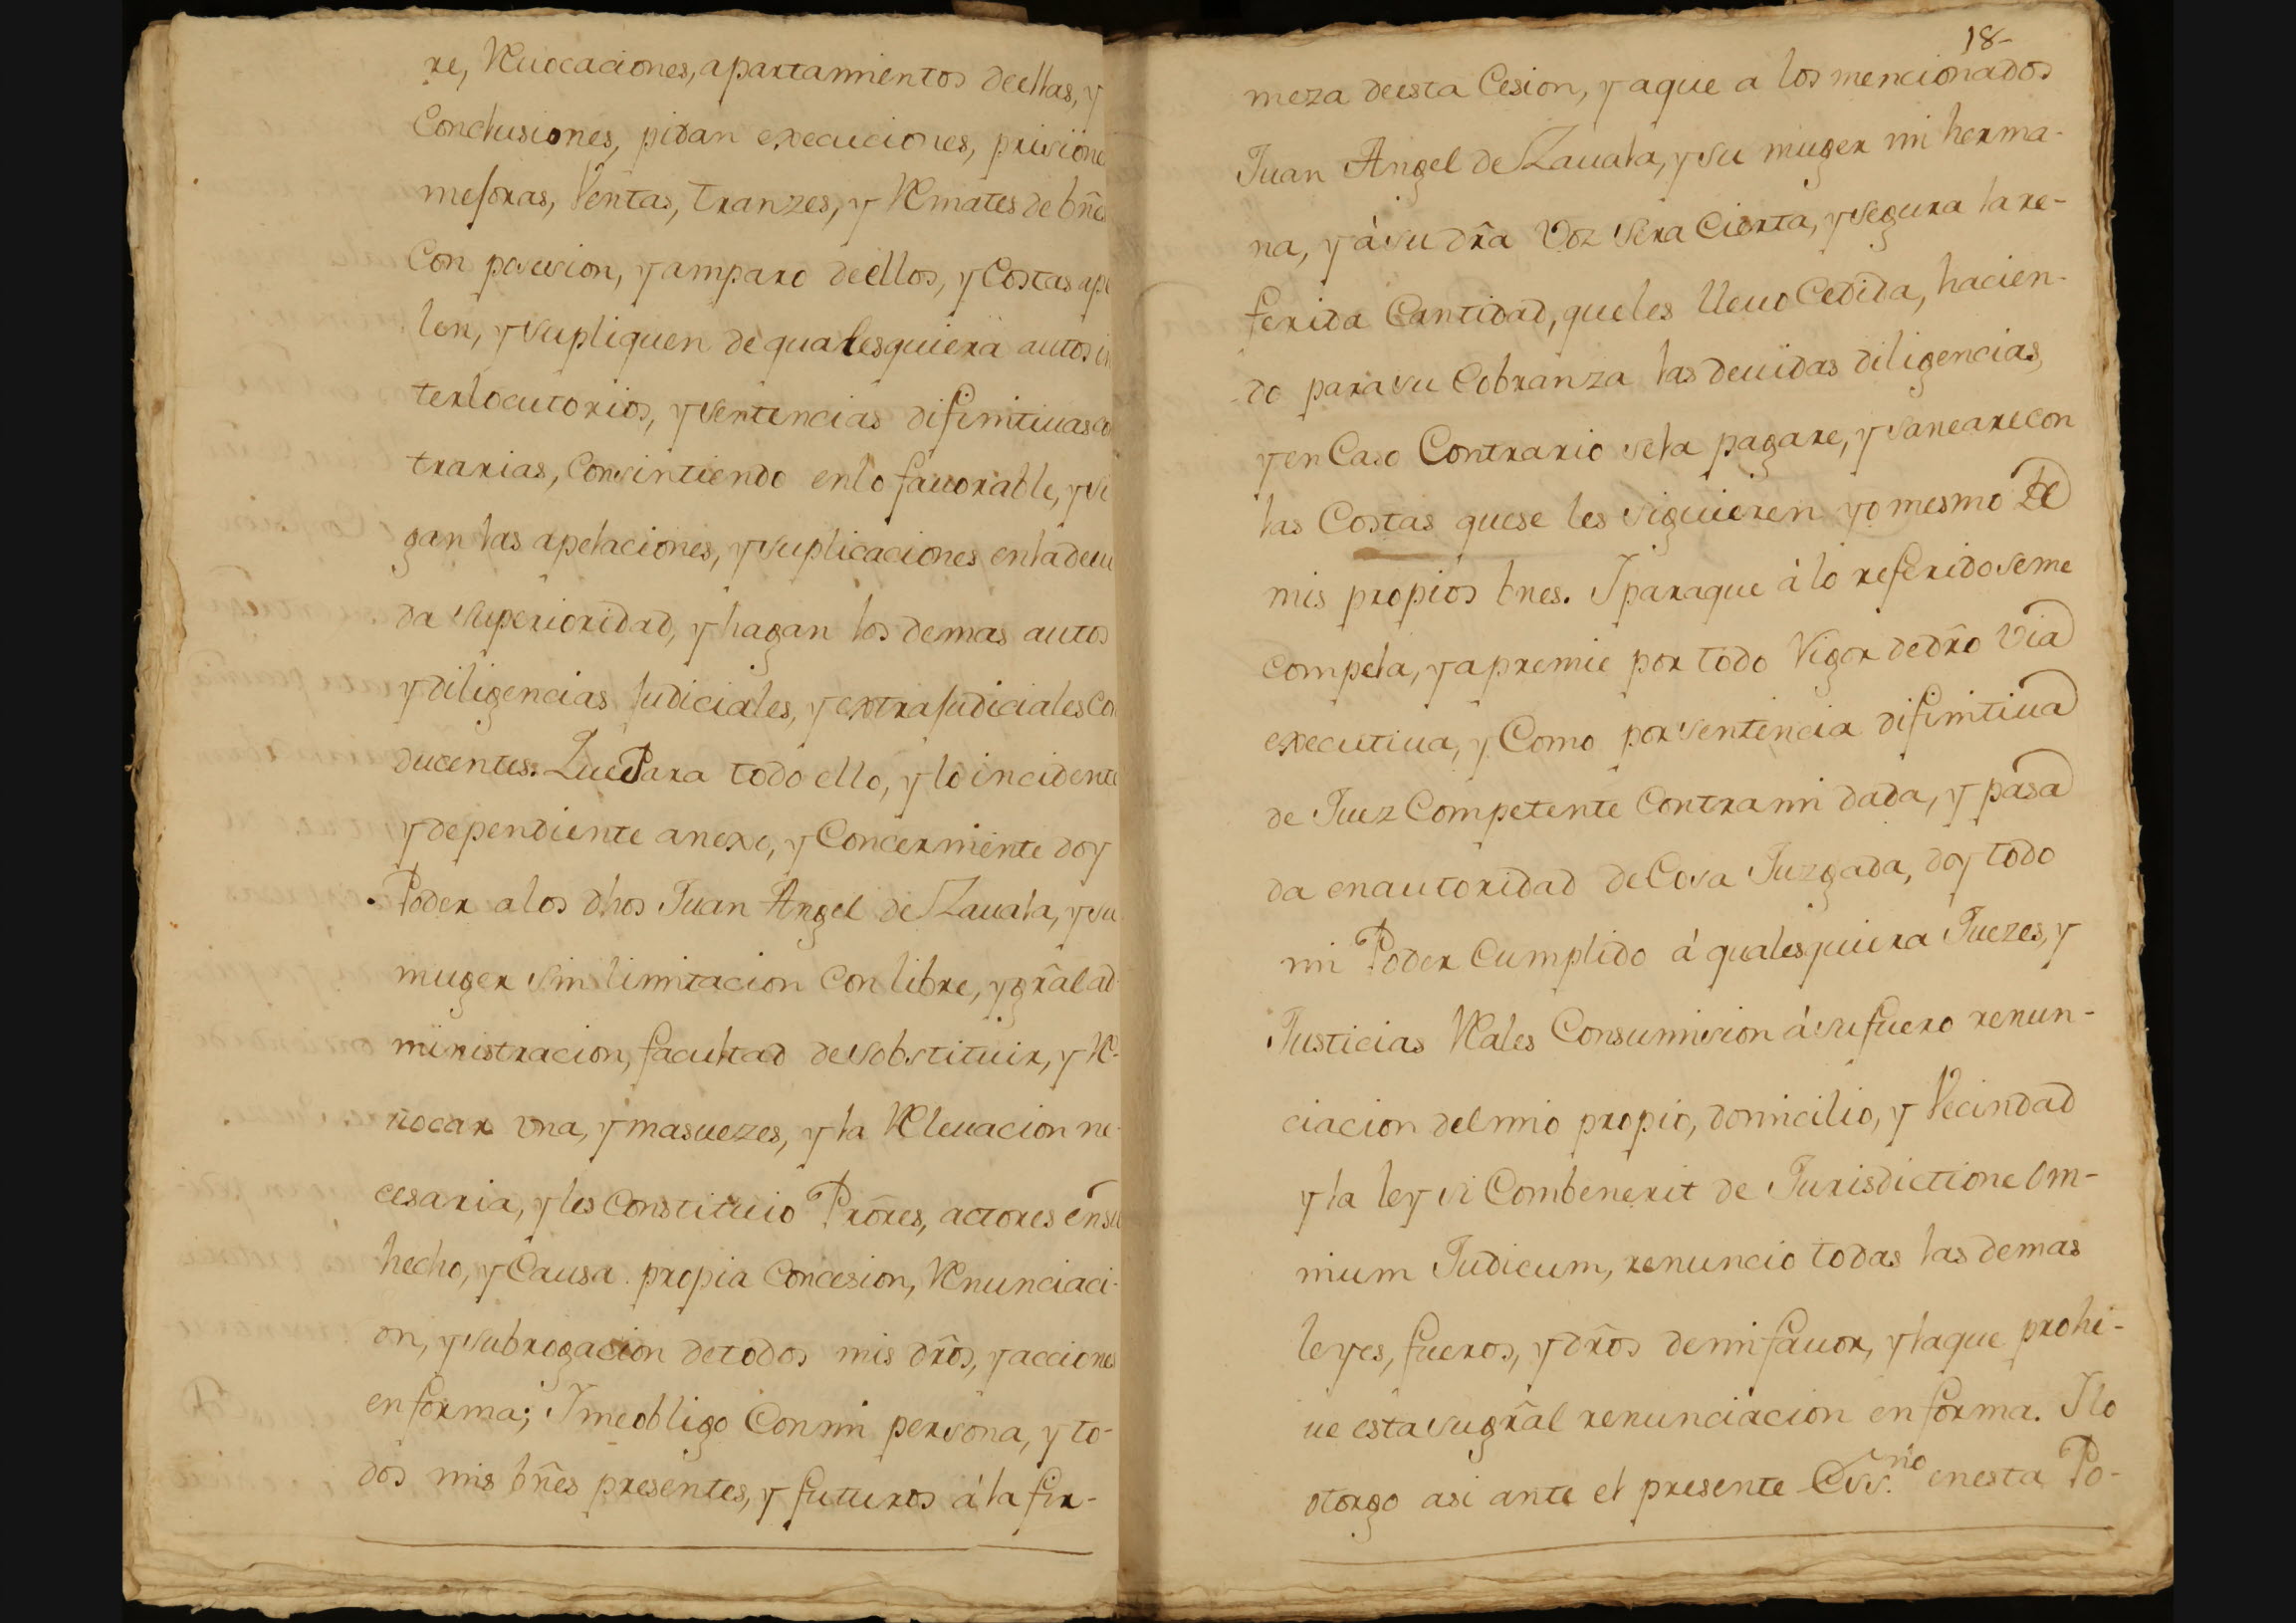 re, Reuocaciones, apartamientos deellas, y
Conclusiones, pidan execuciones, prisione
mejoras, Ventas, tranzes, y Remates de bñes
Con posesion, y amparo deellos, y Costas ape
len, y supliquen de qualesquiera autos in
terlocutorios, y sentencias difinitiuas co
trarias, Consintiendo enlo fauorable, y si
gan las apelaciones, y suplicaciones enladeui
da superioridad, y hagan los demas autos
y diligencias Judiciales, y extraJudiciales Con
ducentes. Que Para todo ello, y lo incidente
y dependiente anexo, y Concerniente doy
Poder alos dhos Juan Angel de Zauala, y su
muger sin limitacion Con libre, y grãl ad
ministracion, facultad desobstituir, y Re-
uocar vna, y masuezes, y la Releuacion ne-
cesaria, y les Constituio Prõres, actores ensu
hecho, y Causa propia Concesion, Renunciaci-
on, y subrogacion detodos mis drõs, y acciones
en forma; Y meobligo Conmi persona, y to-
dos mis bñes presentes, y futuros á la fir-
18-
meza deesta Cesion, y aque a los mencionados
Juan Angel de Zauala, y su muger mi herma-
na, y á su drã Voz sera Cierta, y segura la re-
ferida Cantidad, queles lleuo Cedida, hacien-
do parasu Cobranza las deuidas diligencias,
y en Caso Contrario sela pagare, y sanearecon
las Costas quese les siguieren yo mesmo de
mis propios bnes. Y paraque á lo referido seme
compela, y apremie por todo Vigor dedrõ via
executiua, y Como por sentencia difinitiua
de Juez Competente Contra mi dada, y pasa
da enautoridad de Cosa Juzgada, doy todo
mi Poder Cumplido á qualesquiera Juezes, y
Justicias Rales Consumision ásu fuero renun-
ciacion delmio propio, domicilio, y Vecindad
y la ley si Combenerit de Jurisdictione Om-
nium Judicum, renuncio todas las demas
leyes, fueros, y drõs demi fauor, y laque prohi-
ue esta su grãl renunciacion en forma. Y lo
otorgo asi ante el presente Ess.no enesta Po-